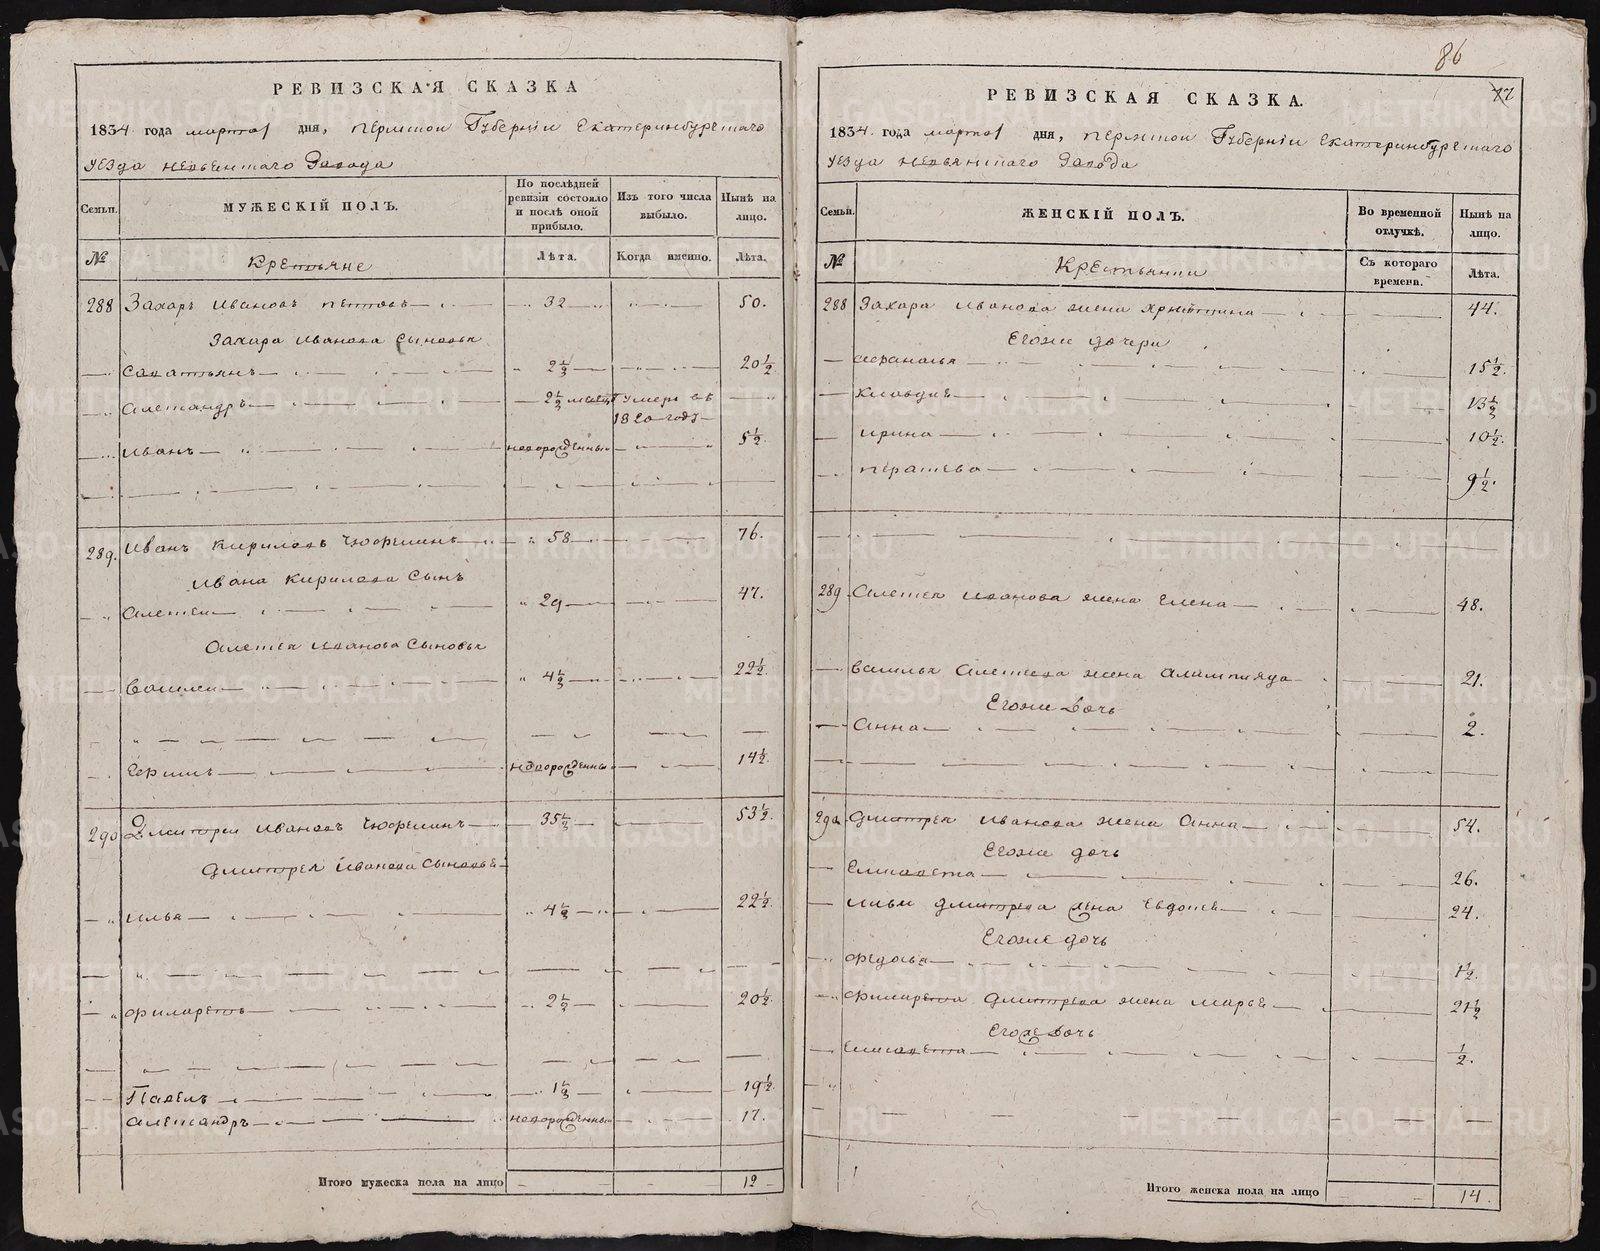 86
РЕВИЗСКАЯ СКАЗКА
1834 года марта 1 дня, Пермской Губерніи Екатеринбургскаго
уезда Невьянскаго Завода
Семьи.
МУЖЕСКІЙ ПОЛЪ.
По послѣдней ревизіи состояло и послѣ оной прибыло.
Изъ того числа выбыло.
Нынѣ на лицо.
№
Крестьяне
Лѣта.
Когда именно.
Лѣта.
288 Захаръ Ивановъ 32 50.
Захара Иванова сыновья
Савастьянъ 2 1/2 20 1/2
Александръ 2 1/2 месеца Умеръ въ
1820 году
Иванъ новорожденный 5 1/2
289. Иванъ Кириловъ 58 76.
Ивана Кирилова сынъ
Алексей 29 47.
Алексея Иванова сыновья
Василей 4 1/2 22 1/2
Ефимъ новорожденны 14 1/2
290 Дмитрей Ивановъ 35 1/2 53 1/2
Дмитрея Иванова сыновье
Илья 4 1/2 22 1/2
Филаретъ 2 1/2 20 1/2
Павелъ 1 1/2 19 1/2
Александръ новорожденный 17.
Итого мужеска пола на лицо 12
РЕВИЗСКАЯ СКАЗКА.
77
1834 года марта 1 дня, Пермской Губерніи Екатеринбургскаго
уезда Невьянскаго Завода
Семьи.
ЖЕНСКІЙ ПОЛЪ.
Во временной отлучкѣ.
Нынѣ на лицо.
№
Крестьянки
Съ котораго времени.
Лѣта.
288 Захара Иванова жена Христина 44.
Егоже дочери
Афанасья 15 1/2.
Клавдие 13 1/2
Ирина 10 1/2.
Парасева 9 1/2.
289 Алексея Иванова жена Елена 48.
Василья Алексеева жена Алимпияда 21.
Егоже дочь
Анна 2.
290 Дмитрея Иванова жена Анна 54.
Егоже дочь
Елисавета 26.
Ильи Дмитрева жена Евдокие 24.
Егоже дочь
Федосья 1 1/2.
Филарета Дмитрева жена Марье 21 1/2
Егоже дочь
Елисавета 1/2.
Итого женска пола на лицо 14.
METRIKI.GASO-URAL.RU